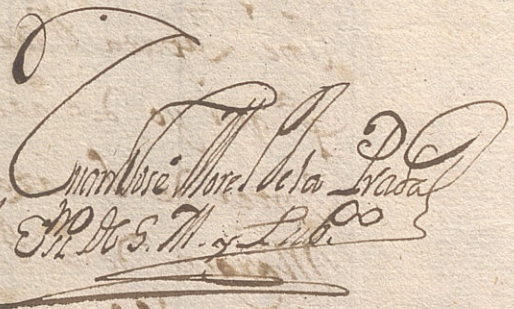 Juan Jose Morel de la Prada
Sno De S. M. y Pubco